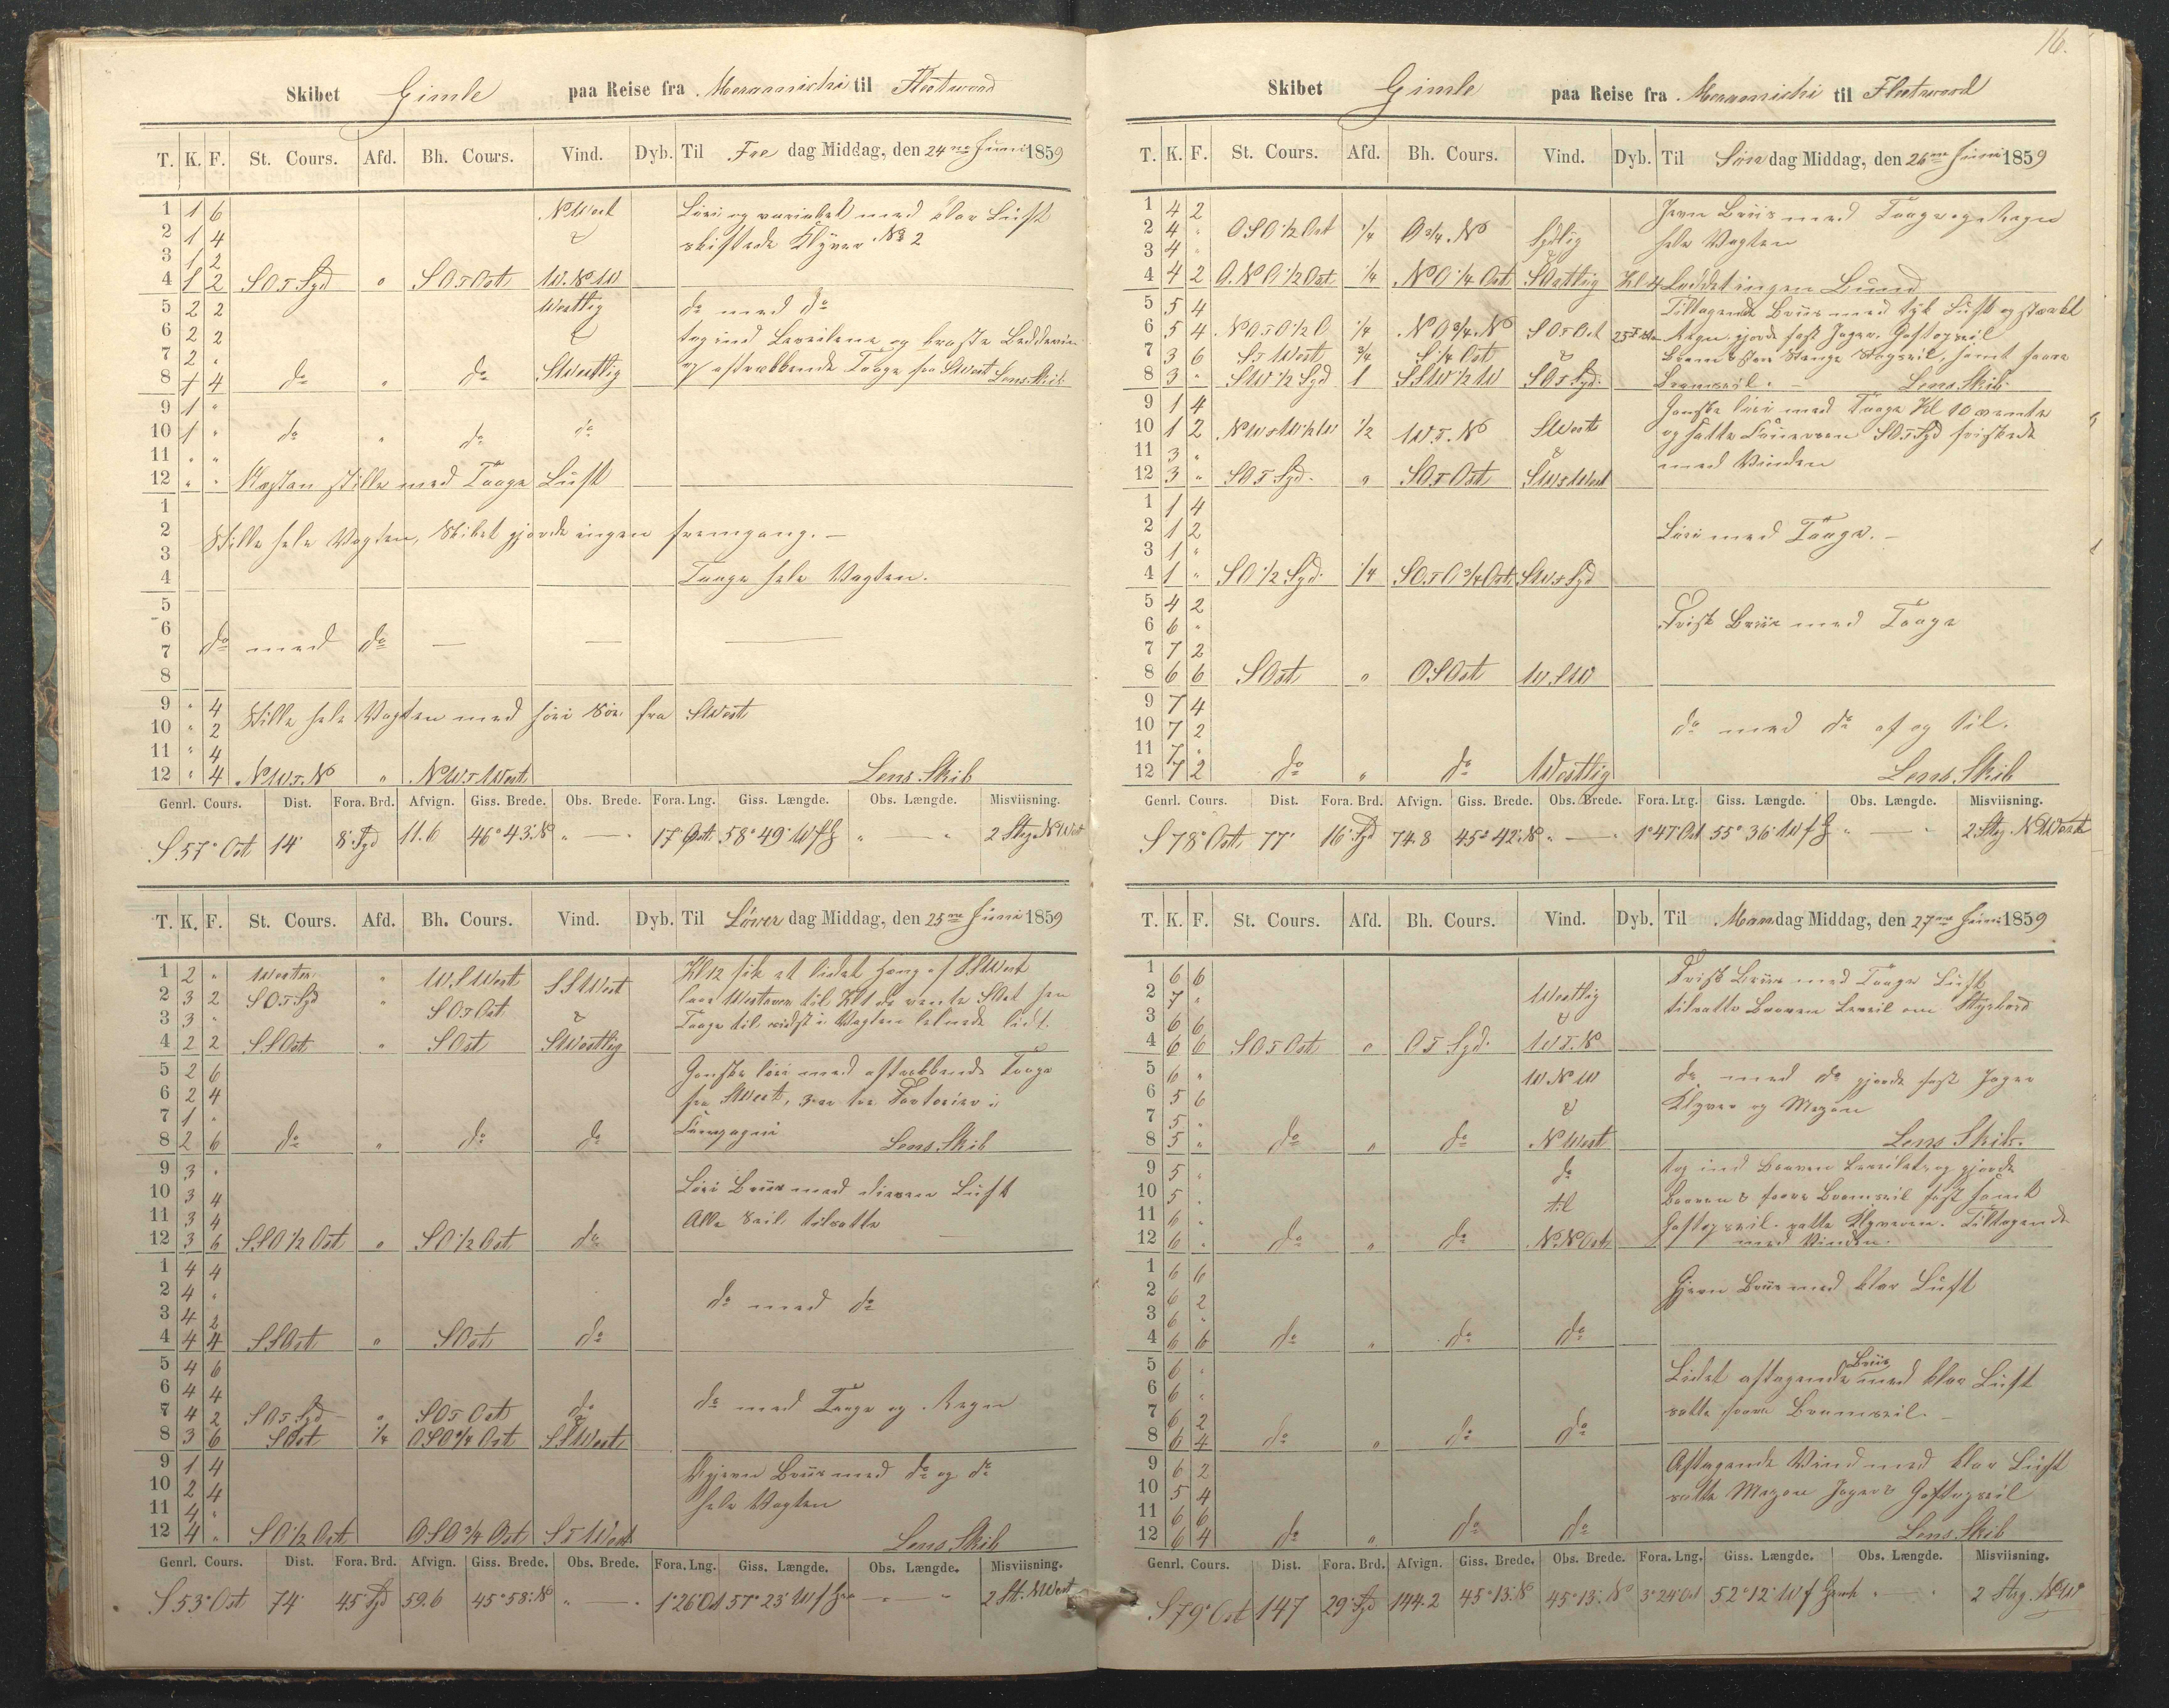 Skibet Gimle paa Reise fra Meramichi til Fleetwood
T. K. F. St. Cours. Afd. Bh. Cours. Vind. Dyb. Til Fre dag Middag, den 24de Juni 1859
1 1 6 N West Löi og variabel med klar Luft
2 1 4 skiftede Klyver No 2
3 1 2
4 1 2 SO t Syd " SO t Ost W.N.W
5 2 2 Westlig do med do
6 2 2 tog ind Læseilene og
7 2 " Taage fra SWest Lens Skib
8 1 4 do " do SWestlig
9 1 "
10 1 " do " do do
11 " "
12 " " Vagten stille med Taage Luft
1
2 Stille hele Vagten, Skibet gjorde ingen fremgang. —
3
4 Taage hele Vagten.
5
6 do med do — — —
7
8
9 " 4 Stille hele Vagten med höi Söe fra SWest
10 " 2
11 " 4
12 " 4 NW t N " NW t West Lens Skib
Genrl. Cours. Dist. Fora. Brd. Afvign. Giss. Brede. Obs. Brede. Fora. Lng. Giss. Længde. Obs. Længde. Misviisning.
S 57° Ost 14' 8' Syd 11.6 46° 43' N " — " 17' Ost 58° 49' W f G " — " 2 Streg N West
T. K. F. St. Cours. Afd. Bh. Cours. Vind. Dyb. Til Löver dag Middag, den 25de Juni 1859
1 2 " Westen " W.S.West SSWest Kl 12 fik et lidet
2 3 2 SO t Syd " SO t Ost
3 3 " Taage til sidst i Vagten
4 2 2 SSOst " SOst SWestlig
5 2 6 Ganske löi med Taage
6 2 4 fra SWest,
7 1 "
8 2 6 do " do do Lens Skib
9 3 "
10 3 4 Löi Briis med diesen Luft
11 3 4 Alle Seil tilsatte
12 3 6 SSO 1/2 Ost " SO 1/2 Ost do
1 4 4
2 4 " do med do
3 4 2
4 4 4 SSOst " SOst do
5 4 6
6 4 4 do med Taage og Regn
7 4 2 SO t Syd " SO t Ost do
8 3 6 SOst 1/4 OSO 3/4 Ost SSWest
9 1 4 Gjevn Briis med do og do
10 2 4 hele Vagten
11 4 "
12 4 " SO 1/2 Ost OSO 3/4 Ost S t West Lens Skib
Genrl. Cours. Dist. Fora. Brd. Afvign. Giss. Brede. Obs. Brede. Fora. Lng. Giss. Længde. Obs. Længde. Misviisning.
S 53° Ost 74' 45' Syd 59.6 45° 58' N " — " 1° 26' Ost 57° 23' W f Gr " — " 2 St. NWest
16.
Skibet Gimle paa Reise fra Meramichi til Fleetwood
T. K. F. St. Cours. Afd. Bh. Cours. Vind. Dyb. Til Sön dag Middag, den 26de Juni 1859
1 4 2 Jevn Briis med Taage og Regn
2 4 " OSO 1/2 Ost 1/4 O 3/4 N Sydlig hele Vagten
3 4 "
4 4 2 O.N.O 1/2 Ost 1/4 NO 1/4 Ost SOstlig Kl 4 Loddet ingen Bund
5 5 4 Tiltagende Briis med tyk Luft og stærkt
6 5 4 NO t O 1/2 O 1/4 NO 3/4 N SO t Ost Regn gjorde fast Jager, Gaftopseil
7 3 6 S t West 3/4 S 1/4 Ost Stagseil, samt
8 3 " SW 1/2 Syd 1 SSW 1/2 W SO t Syd Bramseil. — Lens Skib.
9 1 4 Ganske löi med Taage Kl 10
10 1 2 1/2 W t N SWest og satte SO t Syd
11 3 " med Vinden
12 3 " SO t Syd " SO t Ost SW t West
1 1 4
2 1 2 Löi med Taage. —
3 1 "
4 1 " SO 1/2 Syd 1/4 SO t O 3/4 Ost SW t Syd
5 4 2
6 6 " Frisk Briis med Taage
7 7 2
8 6 6 SOst " OSOst W.SW
9 7 4
10 7 2 do med do af og til.
11 7 "
12 7 2 do " do Westlig Lens Skib
Genrl. Cours. Dist. Fora. Brd. Afvign. Giss. Brede. Obs. Brede. Fora. Lng. Giss. Længde. Obs. Længde. Misviisning.
S 78° Ost 77' 16' Syd 74.8 45° 42' N " — " 1° 47' Ost 55° 36' W f G " — " 2 Streg N West
T. K. F. St. Cours. Afd. Bh. Cours. Vind. Dyb. Til Man dag Middag, den 27de Juni 1859
1 6 6 Frisk Briis med Taage Luft
2 7 " Westlig tilsatte Læseil om Styrbord
3 6 6
4 6 6 SO t Ost " O t Syd W t N
5 6 " W.N.W do med do gjorde fast Jager
6 5 6 Klyver og Mesan
7 5 "
8 5 " do " do N West Lens Skib.
9 5 " do tog ind og gjorde
10 5 " til Bramseil fast samt
11 6 " Gaftopseil. satte Klyveren. Tiltagende
12 6 " do " do N.NOst med Vinden.
1 6 6
2 6 2 Gjevn Briis med klar Luft
3 6 "
4 6 6 do " do do
5 6 " Briis
6 6 " Lidet aftagende med klar Luft
7 6 2 satte Bramseil. —
8 6 4 do " do do
9 6 2 Aftagende Vind med klar Luft
10 5 4 satte Mesan Jager & Gaftopseil
11 6 6
12 6 4 do " do do Lens Skib
Genrl. Cours. Dist. Fora. Brd. Afvign. Giss. Brede. Obs. Brede. Fora. Lng. Giss. Længde. Obs. Længde. Misviisning.
S 79° Ost 147 29' Syd 144.2 45° 13' N 45° 13' N 3° 24' Ost 52° 12' W f Grenh " — " 2 Streg NW